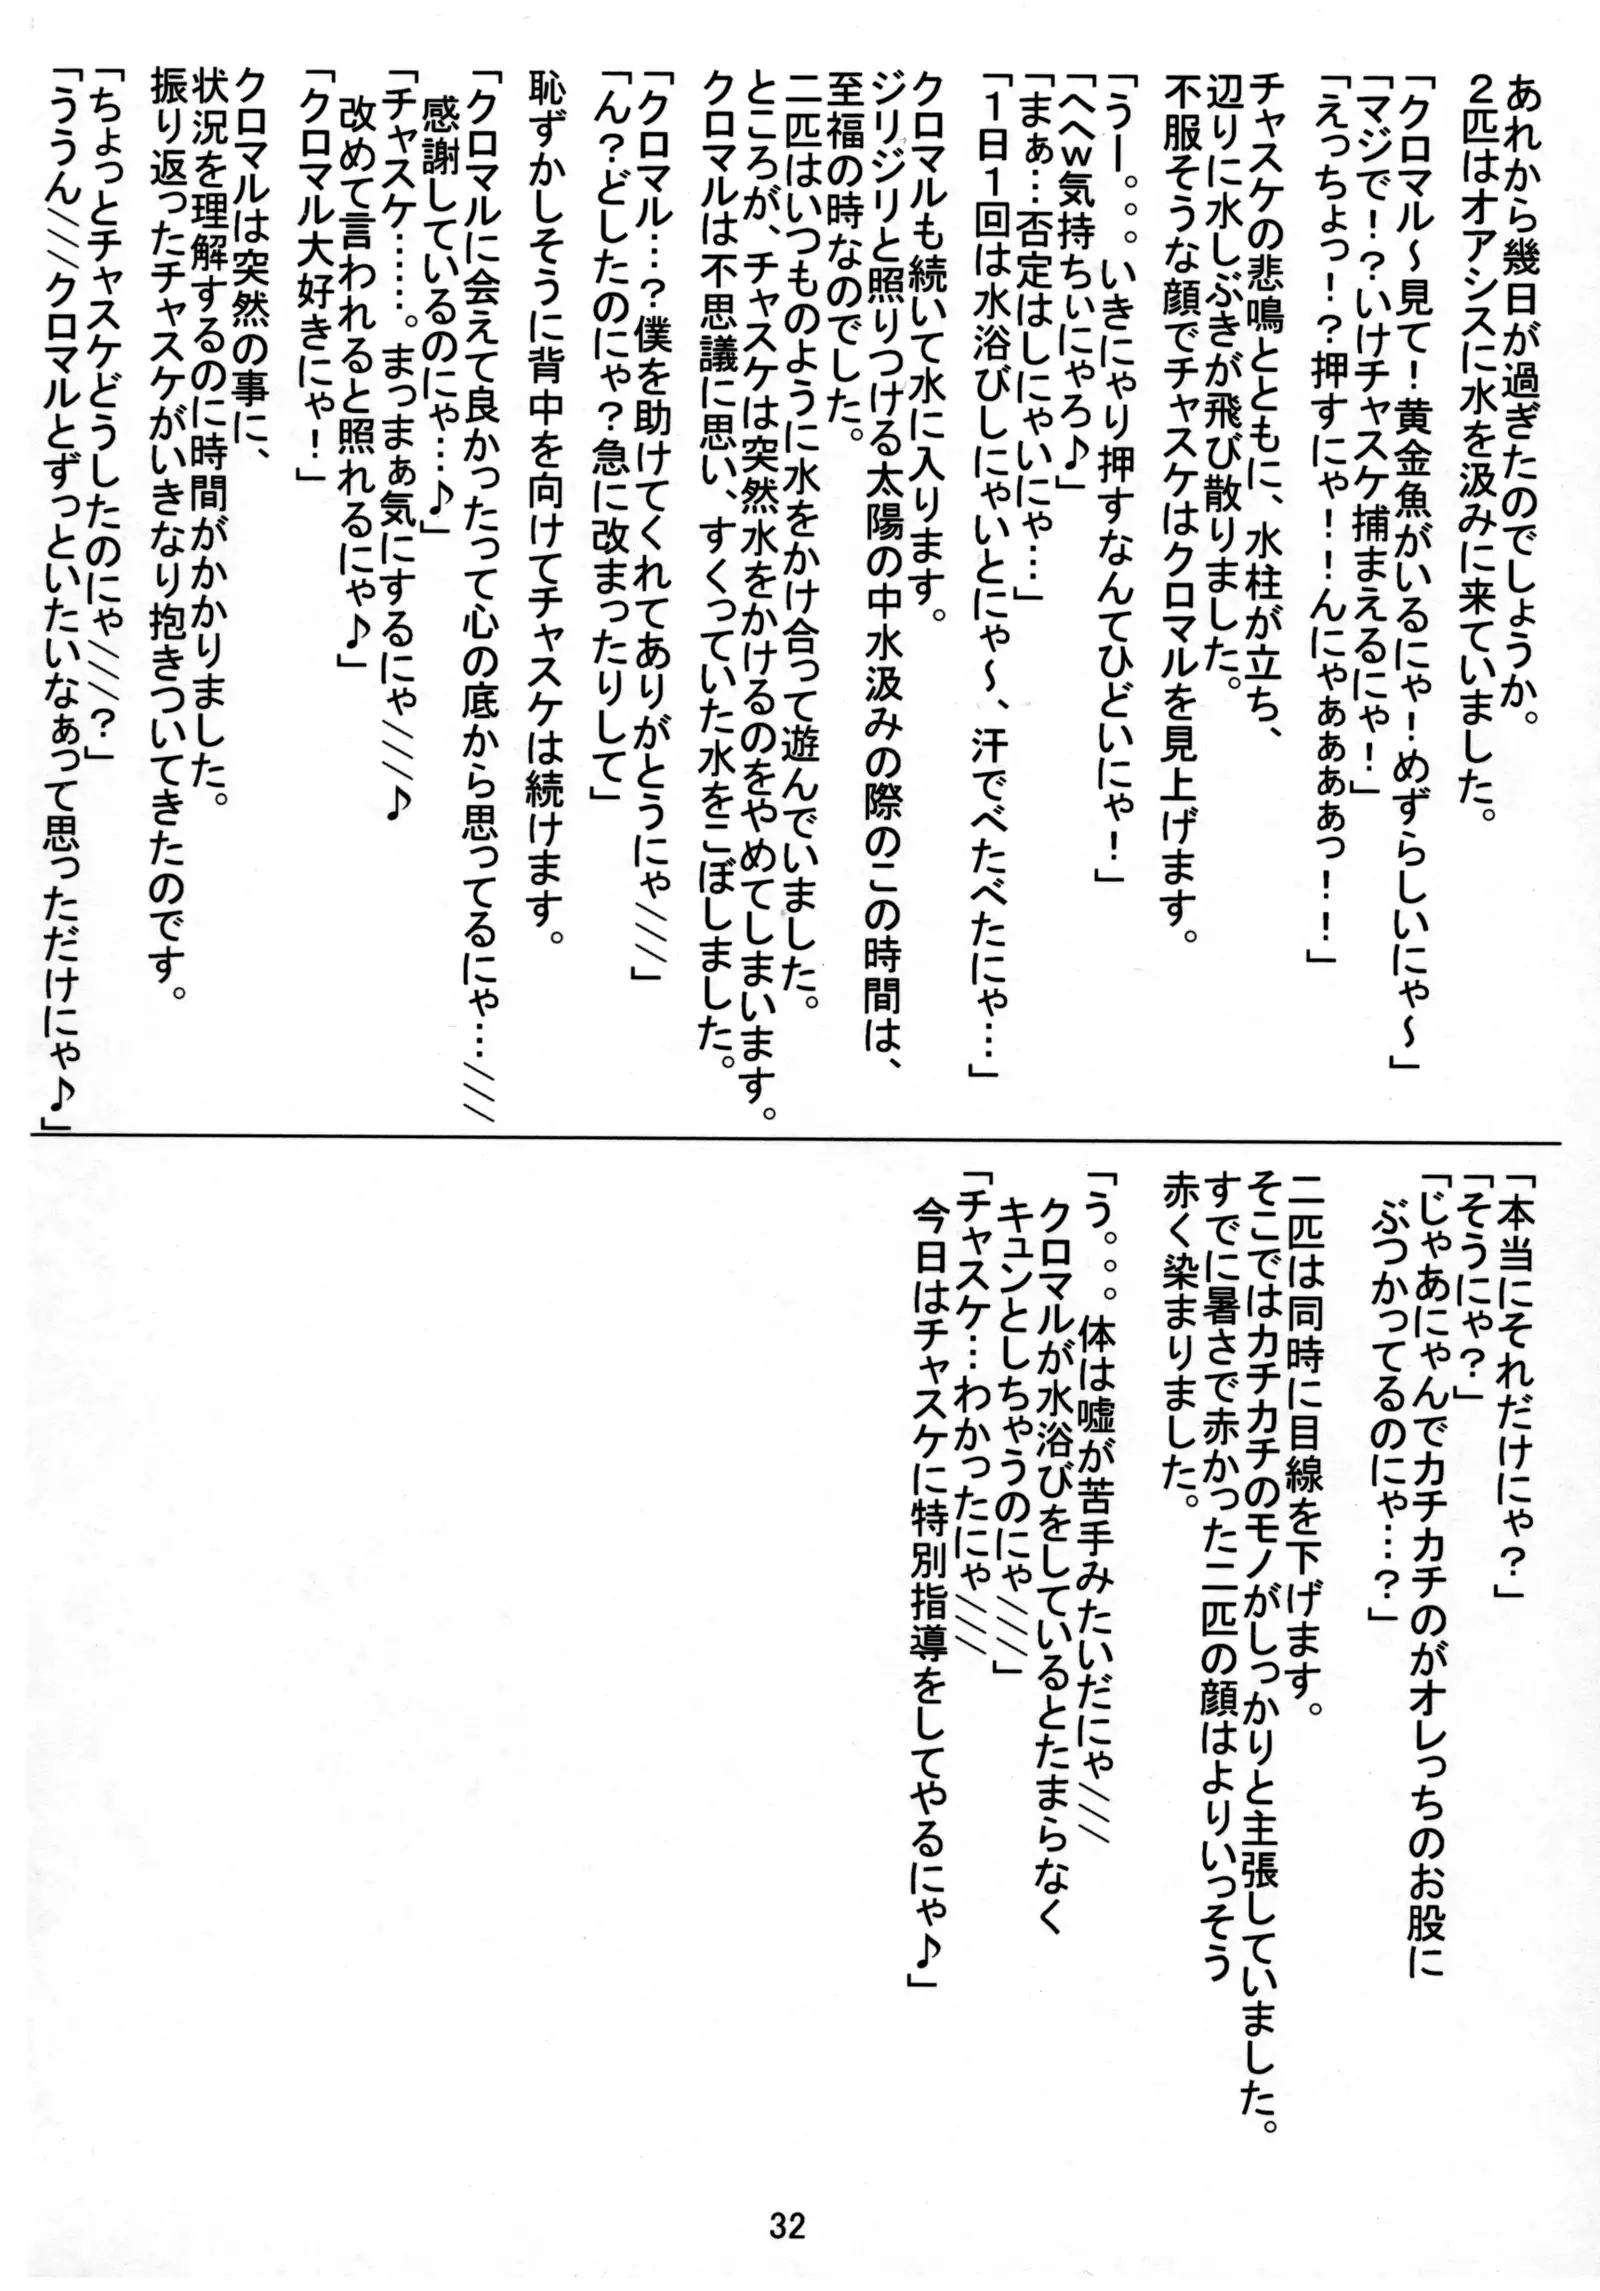 あれから幾日が過ぎたのでしょうか。
２匹はオアシスに水を汲みに来ていました。
「クロマル～見て！黄金魚がいるにゃ！めずらしいにゃ～」
「マジで！？いけチャスケ捕まえるにゃ！」
「えっちょっ！？押すにゃ！！！んにゃぁぁぁぁっ！！」
チャスケの悲鳴とともに、水柱が立ち、
辺りに水しぶきが飛び散りました。
不服そうな顔でチャスケはクロマルを見上げます。
「うー。。。いきにゃり押すなんてひどいにゃ！」
「へへｗ気持ちいにゃろ♪」
「まぁ…否定はしにゃいにゃ…」
「１日１回は水浴びしにゃいとにゃ～、汗でべたべたにゃ…」
クロマルも続いて水に入ります。
ジリジリと照りつける太陽の中水汲みの際のこの時間は、
至福の時なのでした。
二匹はいつものように水をかけ合って遊んでいました。
ところが、チャスケは突然水をかけるのをやめてしまいます。
クロマルは不思議に思い、すくっていた水をこぼしました。
「クロマル…？僕を助けてくれてありがとうにゃ///」
「ん？どしたのにゃ？急に改まったりして」
恥ずかしそうに背中を向けてチャスケは続けます。
「クロマルに会えて良かったって心の底から思ってるにゃ…///
感謝しているのにゃ…♪」
「チャスケ……。まっまぁ気にするにゃ///♪
改めて言われると照れるにゃ♪」
「クロマル大好きにゃ！」
クロマルは突然の事に、
状況を理解するのに時間がかかりました。
振り返ったチャスケがいきなり抱きついてきたのです。
「ちょっとチャスケどうしたのにゃ///？」
「ううん///クロマルとずっといたいなぁって思っただけにゃ♪」
「本当にそれだけにゃ？」
「そうにゃ？」
「じゃあにゃんでカチカチのがオレっちのお股に
ぶつかってるのにゃ…？」
二匹は同時に目線を下げます。
そこではカチカチのモノがしっかりと主張していました。
すでに暑さで赤かった二匹の顔はよりいっそう
赤く染まりました。
「う。。。体は嘘が苦手みたいだにゃ///
クロマルが水浴びをしているとたまらなく
キュンとしちゃうのにゃ///」
「チャスケ…わかったにゃ///
今日はチャスケに特別指導をしてやるにゃ♪」
32